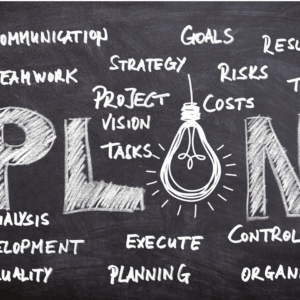 OMMUNICATION GOALS RESU
EAMWORK STRATEGY RISKS T
PROJECT COSTS
VISION
TASKS
PL N
ALYSIS
ELOPMENT EXECUTE CONTROL
UALITY PLANNING ORGANI